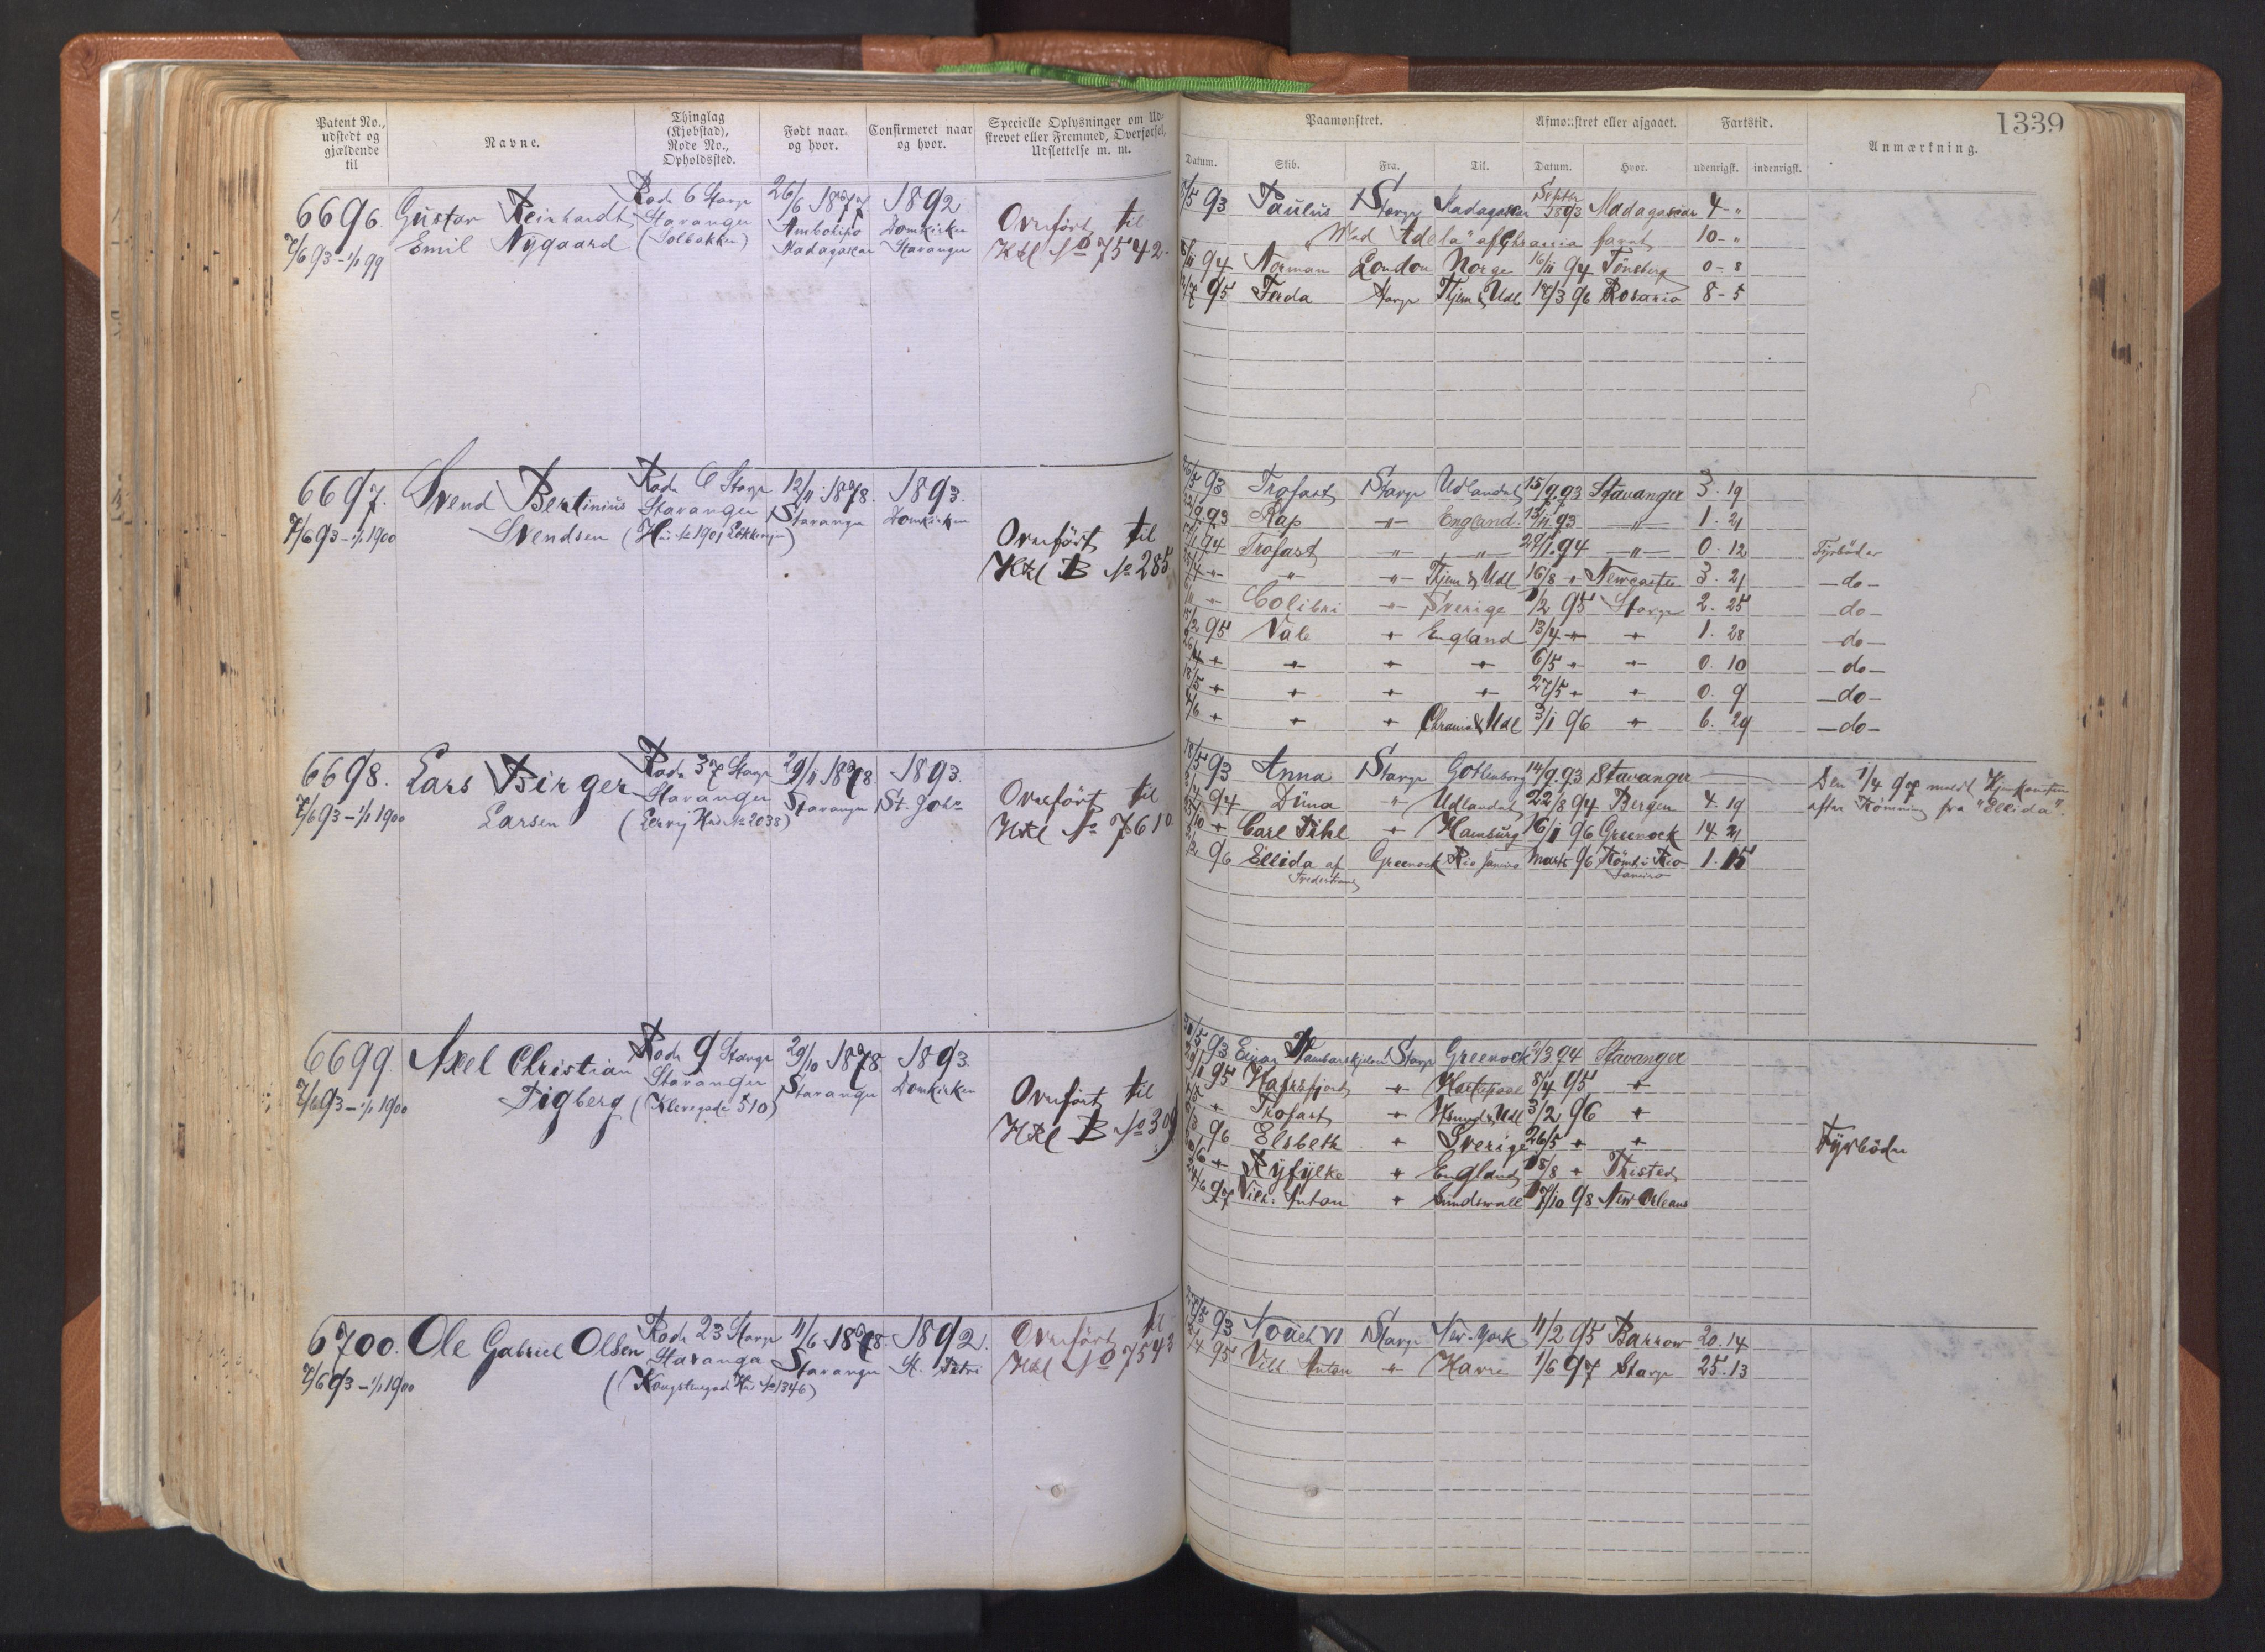 1339
Patent No.,
udstedt og
gjældende
til
Navne.
Thinglag
(Kjøbstad),
Rode No.,
Opholdssted.
Født naar
og hvor.
Confirmeret naar
og hvor.
Specielle Oplysninger om Ud-
skrevet eller Fremmed, Overførsel,
Udslettelse m. m.
Paamønstret.
Afmønstret eller afgaaet.
Fartstid.
Anmærkning.
Datum.
Skib.
Fra.
Til.
Datum.
Hvor.
udenrigsk.
indenrigsk.
6696.
7/6 93 – 1/1 99
Gustav Reinhardt
Emil Nygaard
Rode 6 Stavgr
Stavanger
(Solbakken)
26/6 1877
Madagascar
1892
Domkirken
Stavanger
Overført til
Hkl No 7542.
/5 93 Paulus Stavgr Madagascar Septbr 1893 Madagascar 4 - "
Med "Adela" af Chrania faret 10 - "
/11 94 Norman London Norge 16/11 94 Tønsberg 0 - 8
/7 95 Freda Stavgr Hjem & Udl 17/3 96 Rosario 8 - 5
6697.
7/6 93 – 1/1 1900
Svend Bertinius
Svendsen
Rode 6 Stavgr
Stavanger
12/11 1878.
Stavanger
1893.
Domkirken
Overført til
Hkl B No 285
/5 93 Trofast Stavgr Udlandet 15/9 93 Stavanger 3. 19
22/9 93 Rap -"- England 13/11 93 -"- 1. 21
17/1 94 Trofast -"- -"- 29/1 94 -"- 0. 12 Fyrbøder
-"- -"- Hjem & Udl 16/8 " Newcastle 3. 21 -do-
/11 " Colibri -"- Sverige /2 95 Stavgr 2. 25 -do-
15/2 95 Vale " England 13/4 " " 1. 28 -do-
26/4 " " " " 6/5 " " 0. 10 -do-
18/5 " " " " 27/5 " " 0. 9 -do-
/6 " " " Chrania & Udl 3/1 96 " 6. 29 -do-
6698.
7/6 93 – 1/1 1900
Lars Birger
Larsen
Rode 37 Stavgr
Stavanger
(Lervig Hus No 2038)
29/11 1878.
Stavanger
1893.
St. Johs
Overført til
Hkl No 7610
18/5 93 Anna Stavgr Gothenborg 14/9 93 Stavanger
/4 94 Düna -"- Udlandet 22/8 94 Bergen 4. 19
/10 " Carl Pihl " Hamburg 16/1 96 Greenock 14. 21
/2 96 Ellida af Greenock Rio Janeiro Marts 96 Rømt i Rio 1. 15
Janeiro
Den 1/4 97 meldt Hjemkomsten
efter Rømning fra "Ellida".
6699.
7/6 93 – 1/1 1900
Axel Christian
Figberg
Rode 9 Stavgr
Stavanger
(Klevegade 510)
29/10 1878.
Stavanger
1893.
Domkirken
Overført til
Hkl B No 309
/5 93 Einar Tambarskjelver Stavgr Greenock /3 94 Stavanger
/1 95 Hafrsfjord " Hartepool 8/4 95 "
/5 " Trofast " & Udl 3/2 96 "
/3 96 Elsbeth " Sverige 26/5 " "
/6 " Ryfylke " England 18/8 " Thisted
24/6 97 Vilh: Anton " Sundswall 17/10 98 New Orleans
Fyrbøder
6700.
7/6 93 – 1/1 1900
Ole Gabriel Olsen
Rode 23 Stavgr
Stavanger
(Kongstensgade Hus No 1346)
11/6 1878.
Stavanger
1892.
St. Petri
Overført til
Hkl No 7543
/5 93 Noach VI Stavgr New-York 11/2 95 Barrow 20. 14
/4 95 Vilh. Anton " Havre 1/6 97 Stavgr 25. 13